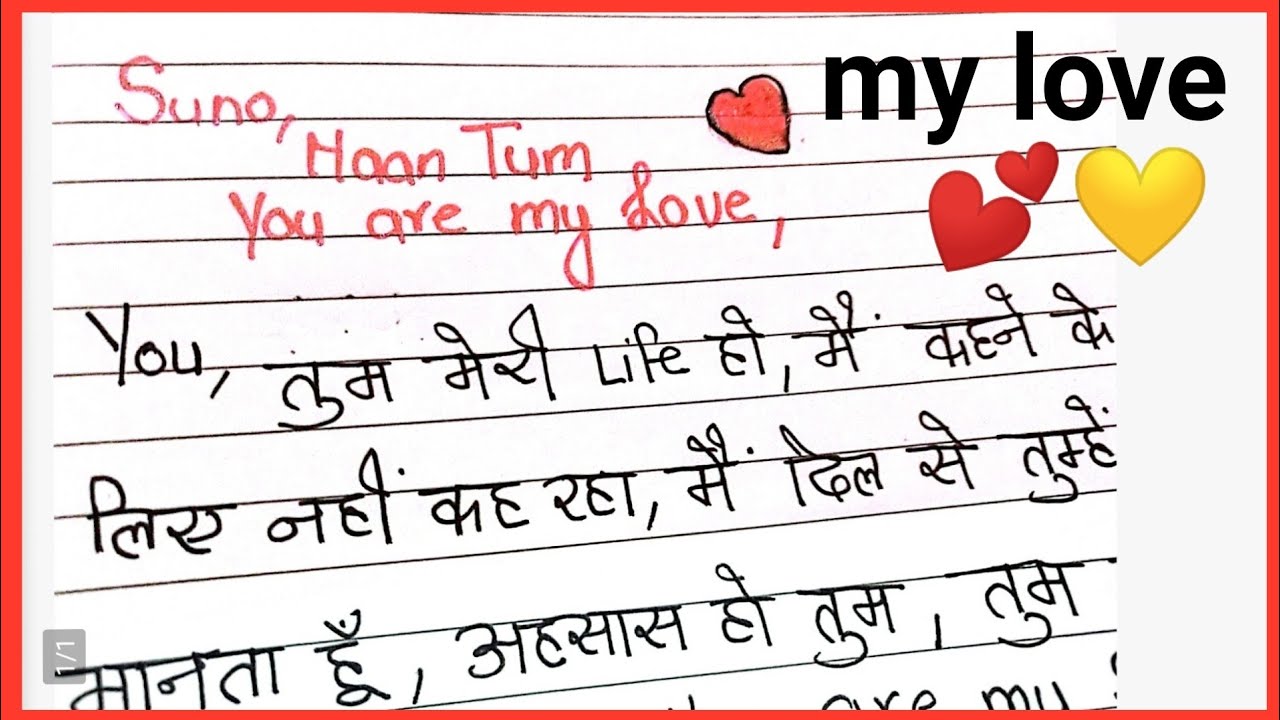 my love
Suno,
Haan Tum
You are my Love,
You, तुम मेरी Life हो, मैं कहने के
लिए नहीं कह रहा, मैं दिल से तुम्हें
मानता हूँ, अहसास हो तुम, तुम
are my
1/1